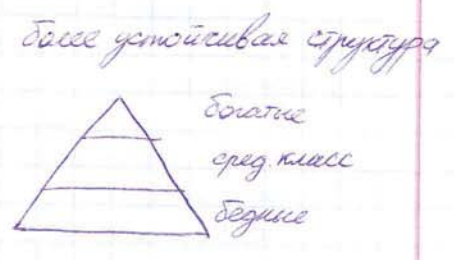 более устойчивая структура
богатые
сред. класс
бедные